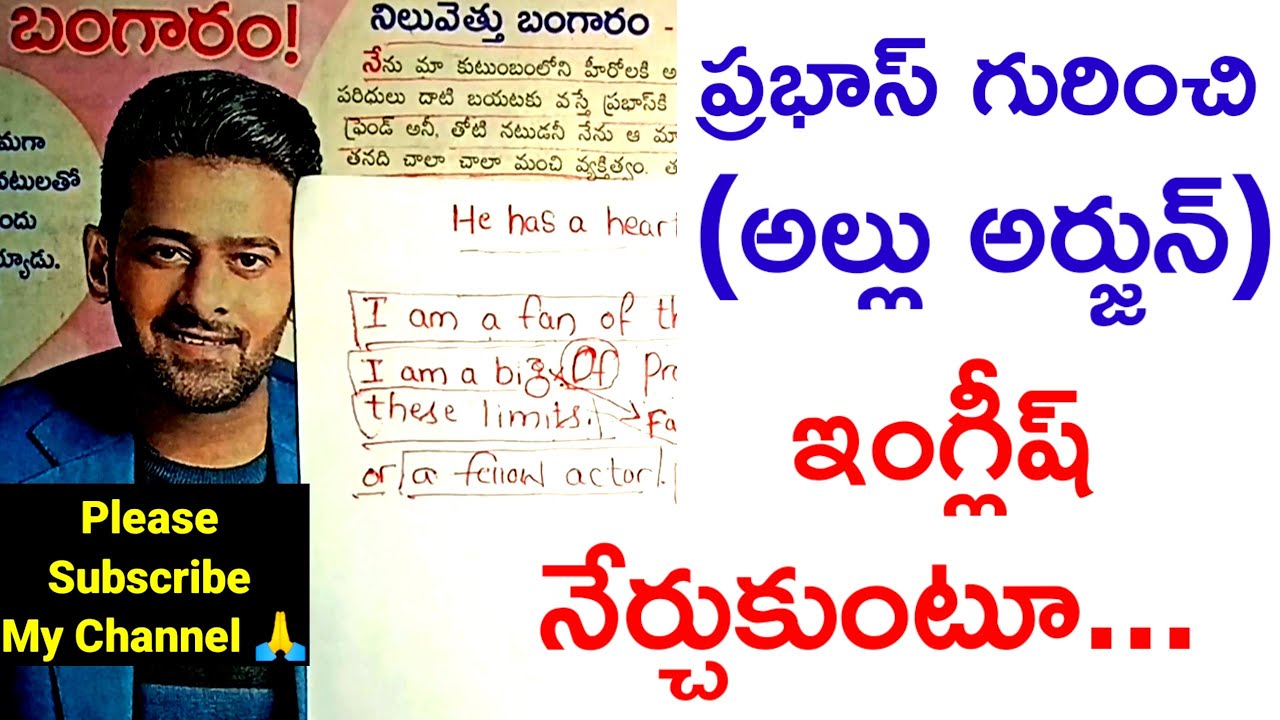 బంగారం!
మగా
నటులతో
ందు
్యాడు.
నిలువెత్తు బంగారం -
నేను మా కుటుంబంలోని హీరోలకి అ
పరిధులు దాటి బయటకు వస్తే ప్రభాస్‌కి
ఫ్రెండ్ అనీ, తోటి నటుడనీ నేను ఆ మా
తనది చాలా చాలా మంచి వ్యక్తిత్వం. త
He has a heart
I am a fan of th
I am a big Of Pra
these limits. Fa
or a fellow actor.
ప్రభాస్ గురించి
(అల్లు అర్జున్)
ఇంగ్లీష్
నేర్చుకుంటూ...
Please
Subscribe
My Channel 🙏